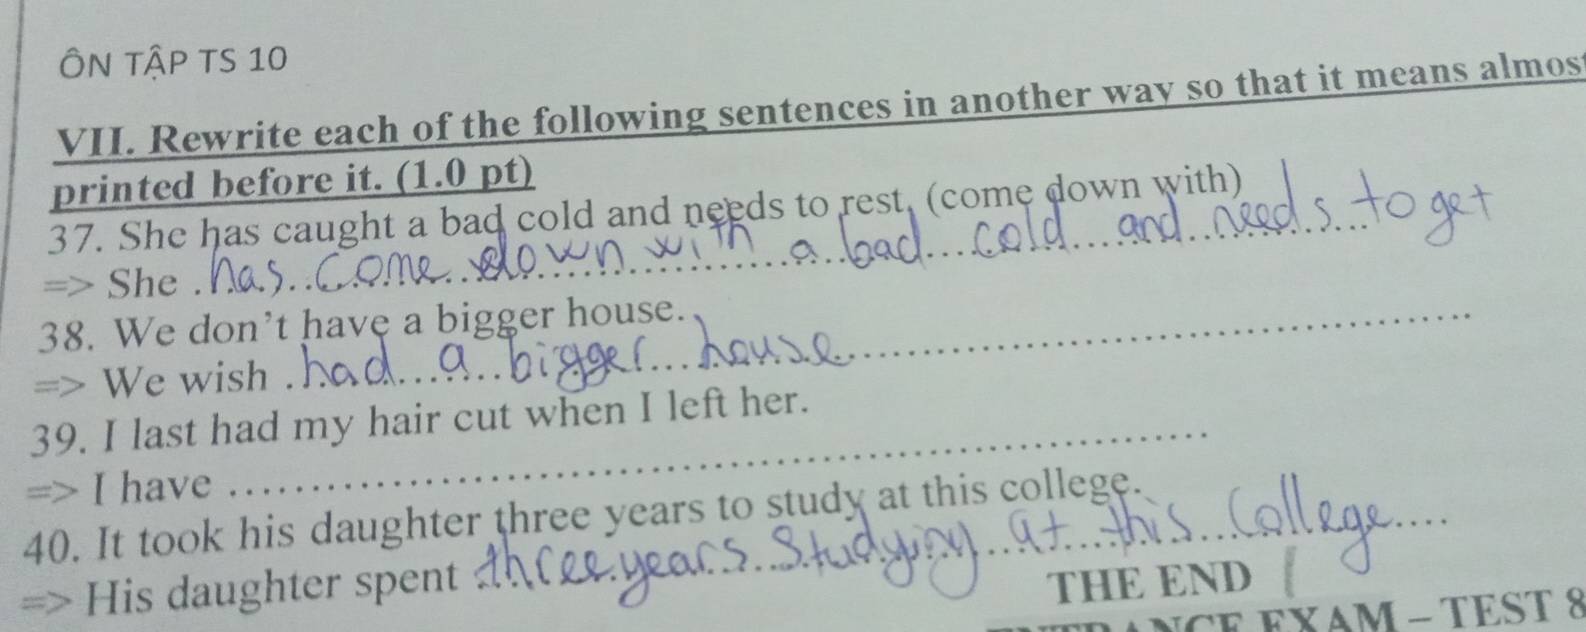 ÔN TẬP TS 10
VII. Rewrite each of the following sentences in another way so that it means almost
printed before it. (1.0 pt)
37. She has caught a bad cold and needs to rest. (come down with)
=> She has come down with a bad cold and needs to get
38. We don't have a bigger house.
=> We wish had a bigger house
39. I last had my hair cut when I left her.
=> I have
40. It took his daughter three years to study at this college.
=> His daughter spent three years studying at this college
THE END
EXAM – TEST 8